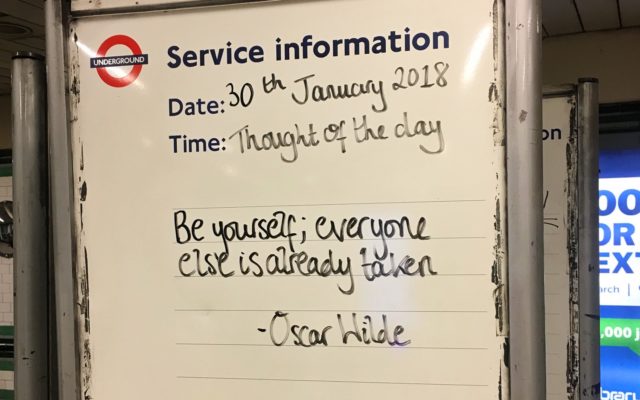 UNDERGROUND
Service information
Date: 30th January 2018
Time: Thought of the day
Be yourself; everyone
else is already taken
- Oscar Wilde
on
OO
OR
EXT
arch
,000 j
brary